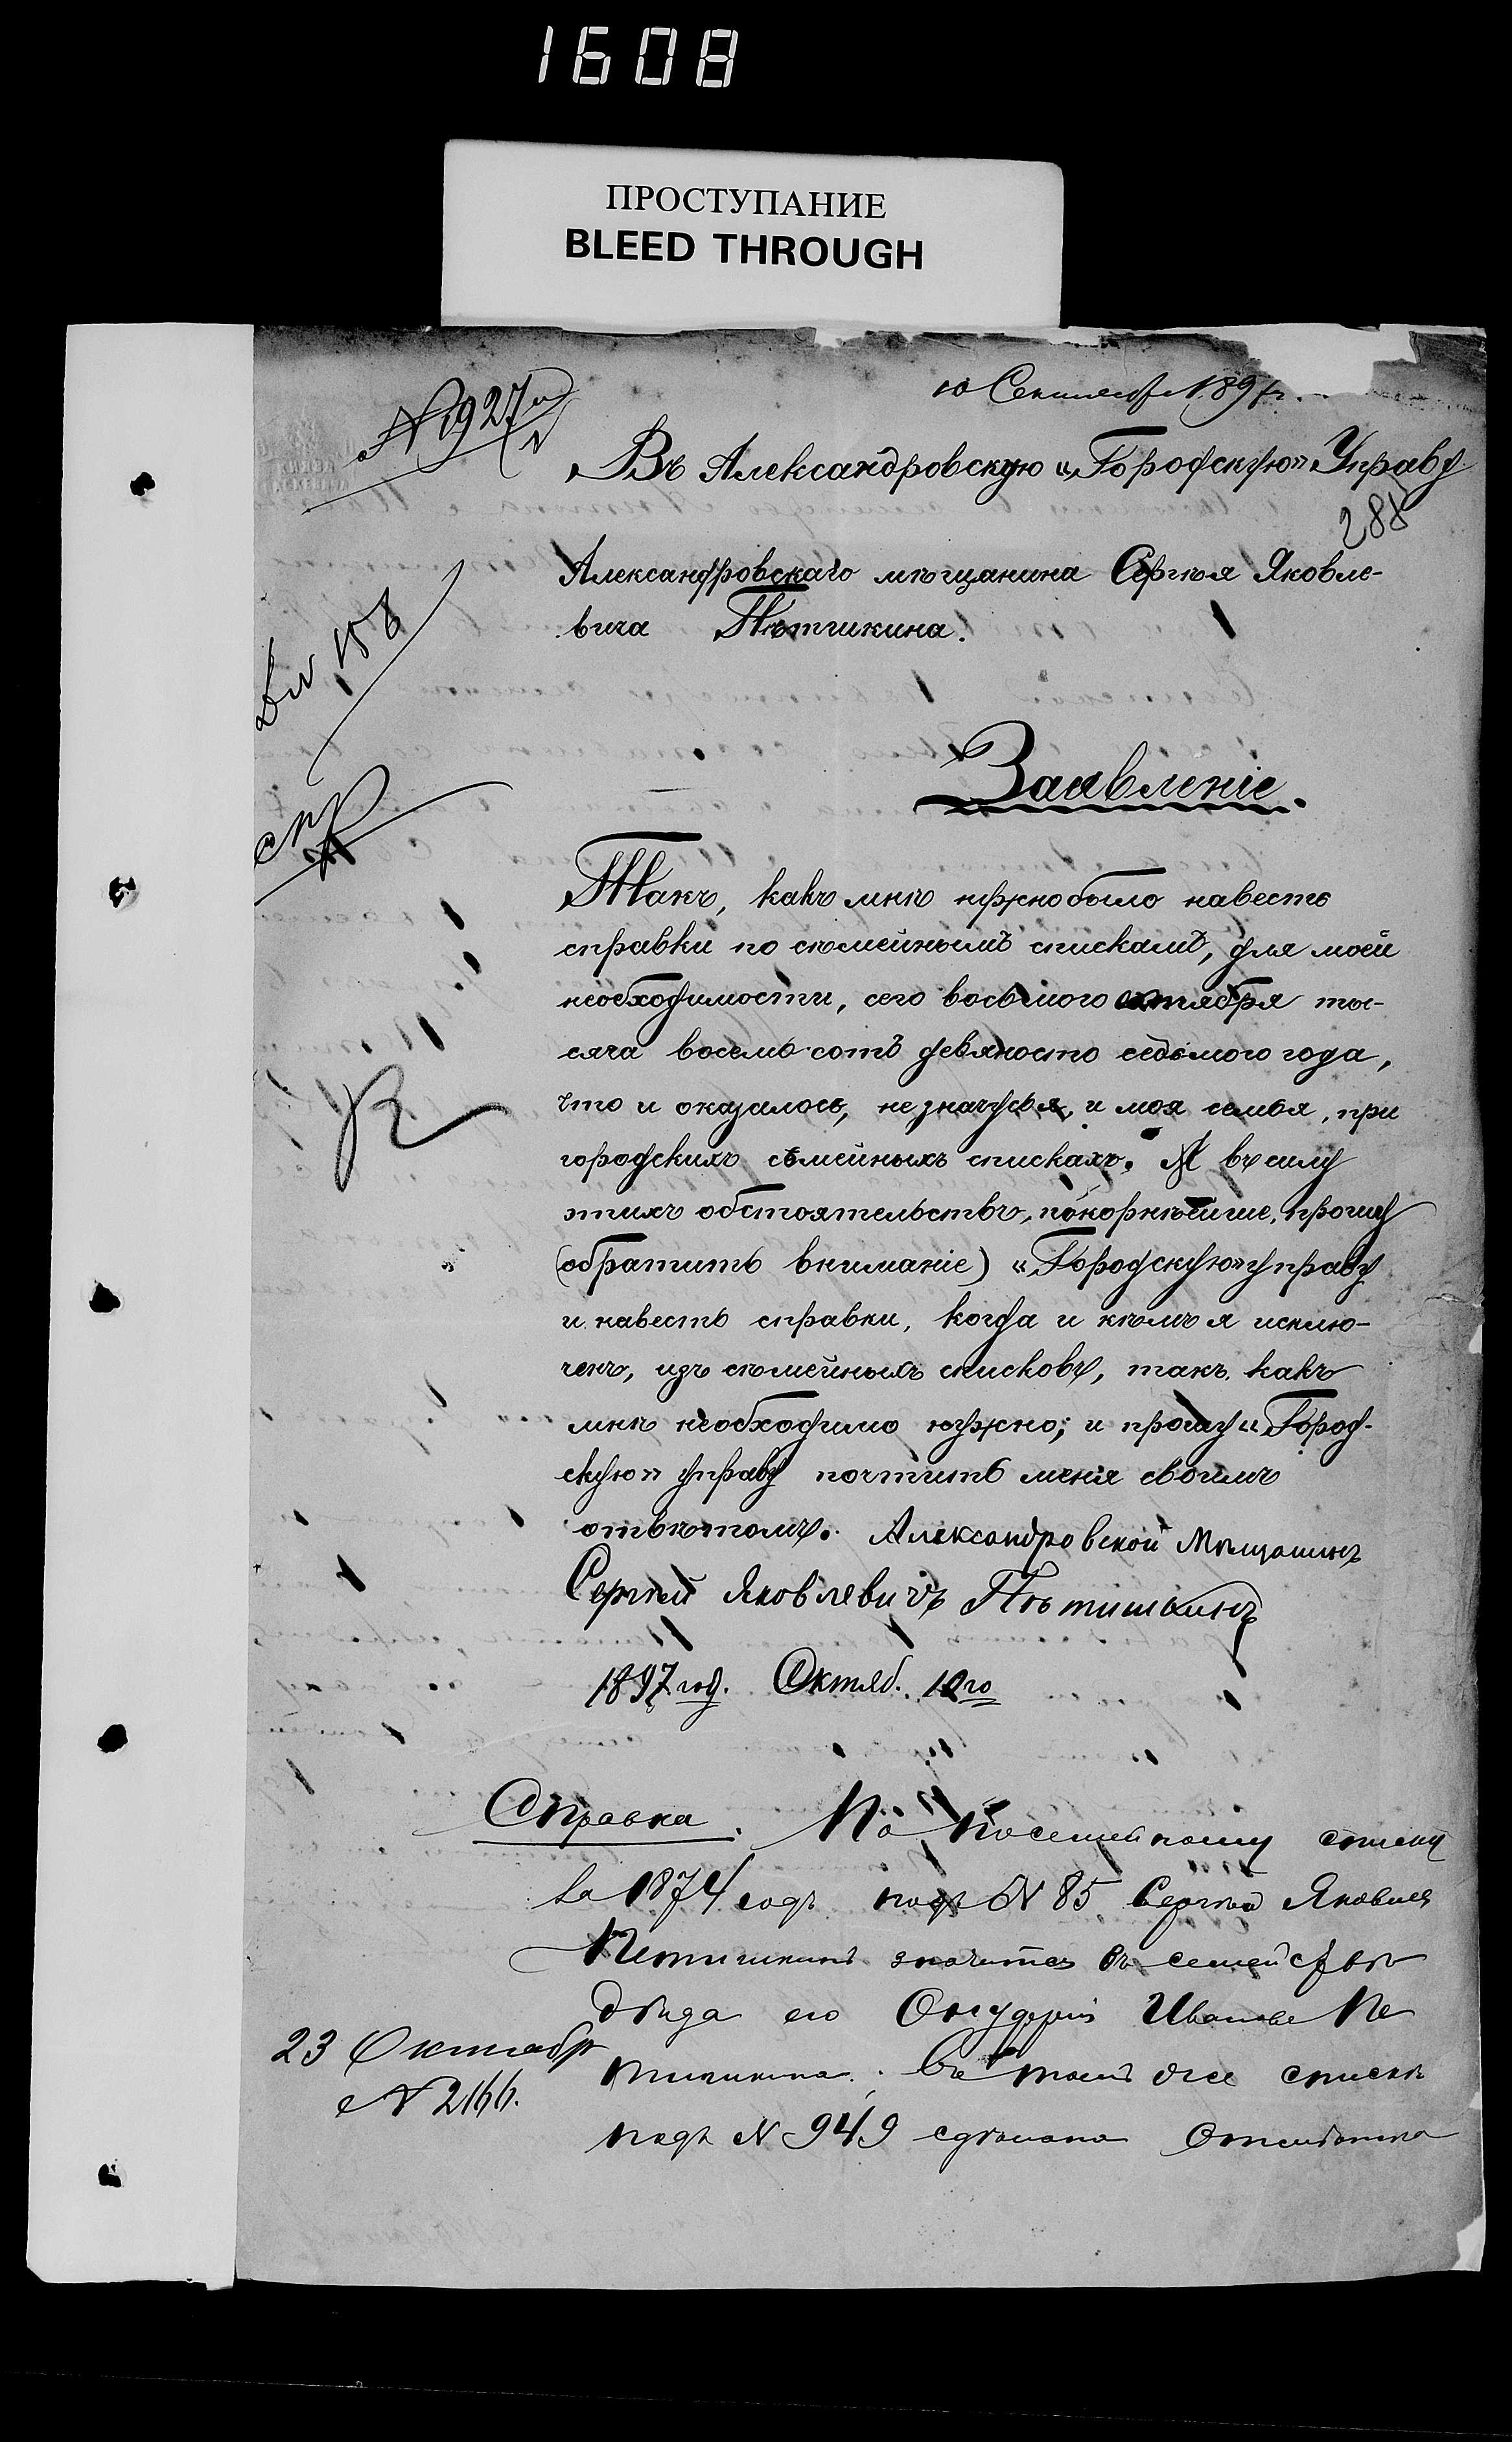 1608
ПРОСТУПАНИЕ
BLEED THROUGH
10 1897 г.
№ 1927
Въ Александровскую „Городскую" Управу
288
Александровскаго мѣщанина Сергѣя Яковле-
вича Пѣтишкина.
158
Заявленіе.
Такъ, какъ мнѣ нужно было навесть
справки по сѣмейнымъ спискамъ, для моей
необходимости, сего восьмого октября ты-
сяча восемь сотъ девяносто седьмого года,
что и оказалось, не значуся, и моя семья, при
городскихъ сѣмейныхъ спискахъ. Я въ силу
этихъ обстоятельствъ, покорнѣейше, прошу
(обратить вниманіе) „Городскую" управу
и навесть справки, когда и кѣмъ я исклю-
ченъ, изъ сѣмейныхъ списковъ, такъ какъ
мнѣ необходимо нужно; и прошу „Город-
скую" управу почтить меня своимъ
отвѣтомъ. Александровской Мѣщанинъ
Сергѣй Яковлевичъ Пѣтишкинъ
1897 год. Октяб. 10го
Справка. По посемейному списку
за 1874 годъ подъ № 85 Сергѣй Яковлев
Петишкинъ значится въ семействѣ
дѣда его Иванова Пе
тишкина. Въ томъ же спискѣ
подъ № 949 сдѣлана отмѣтка
23 Октября
№ 2166.